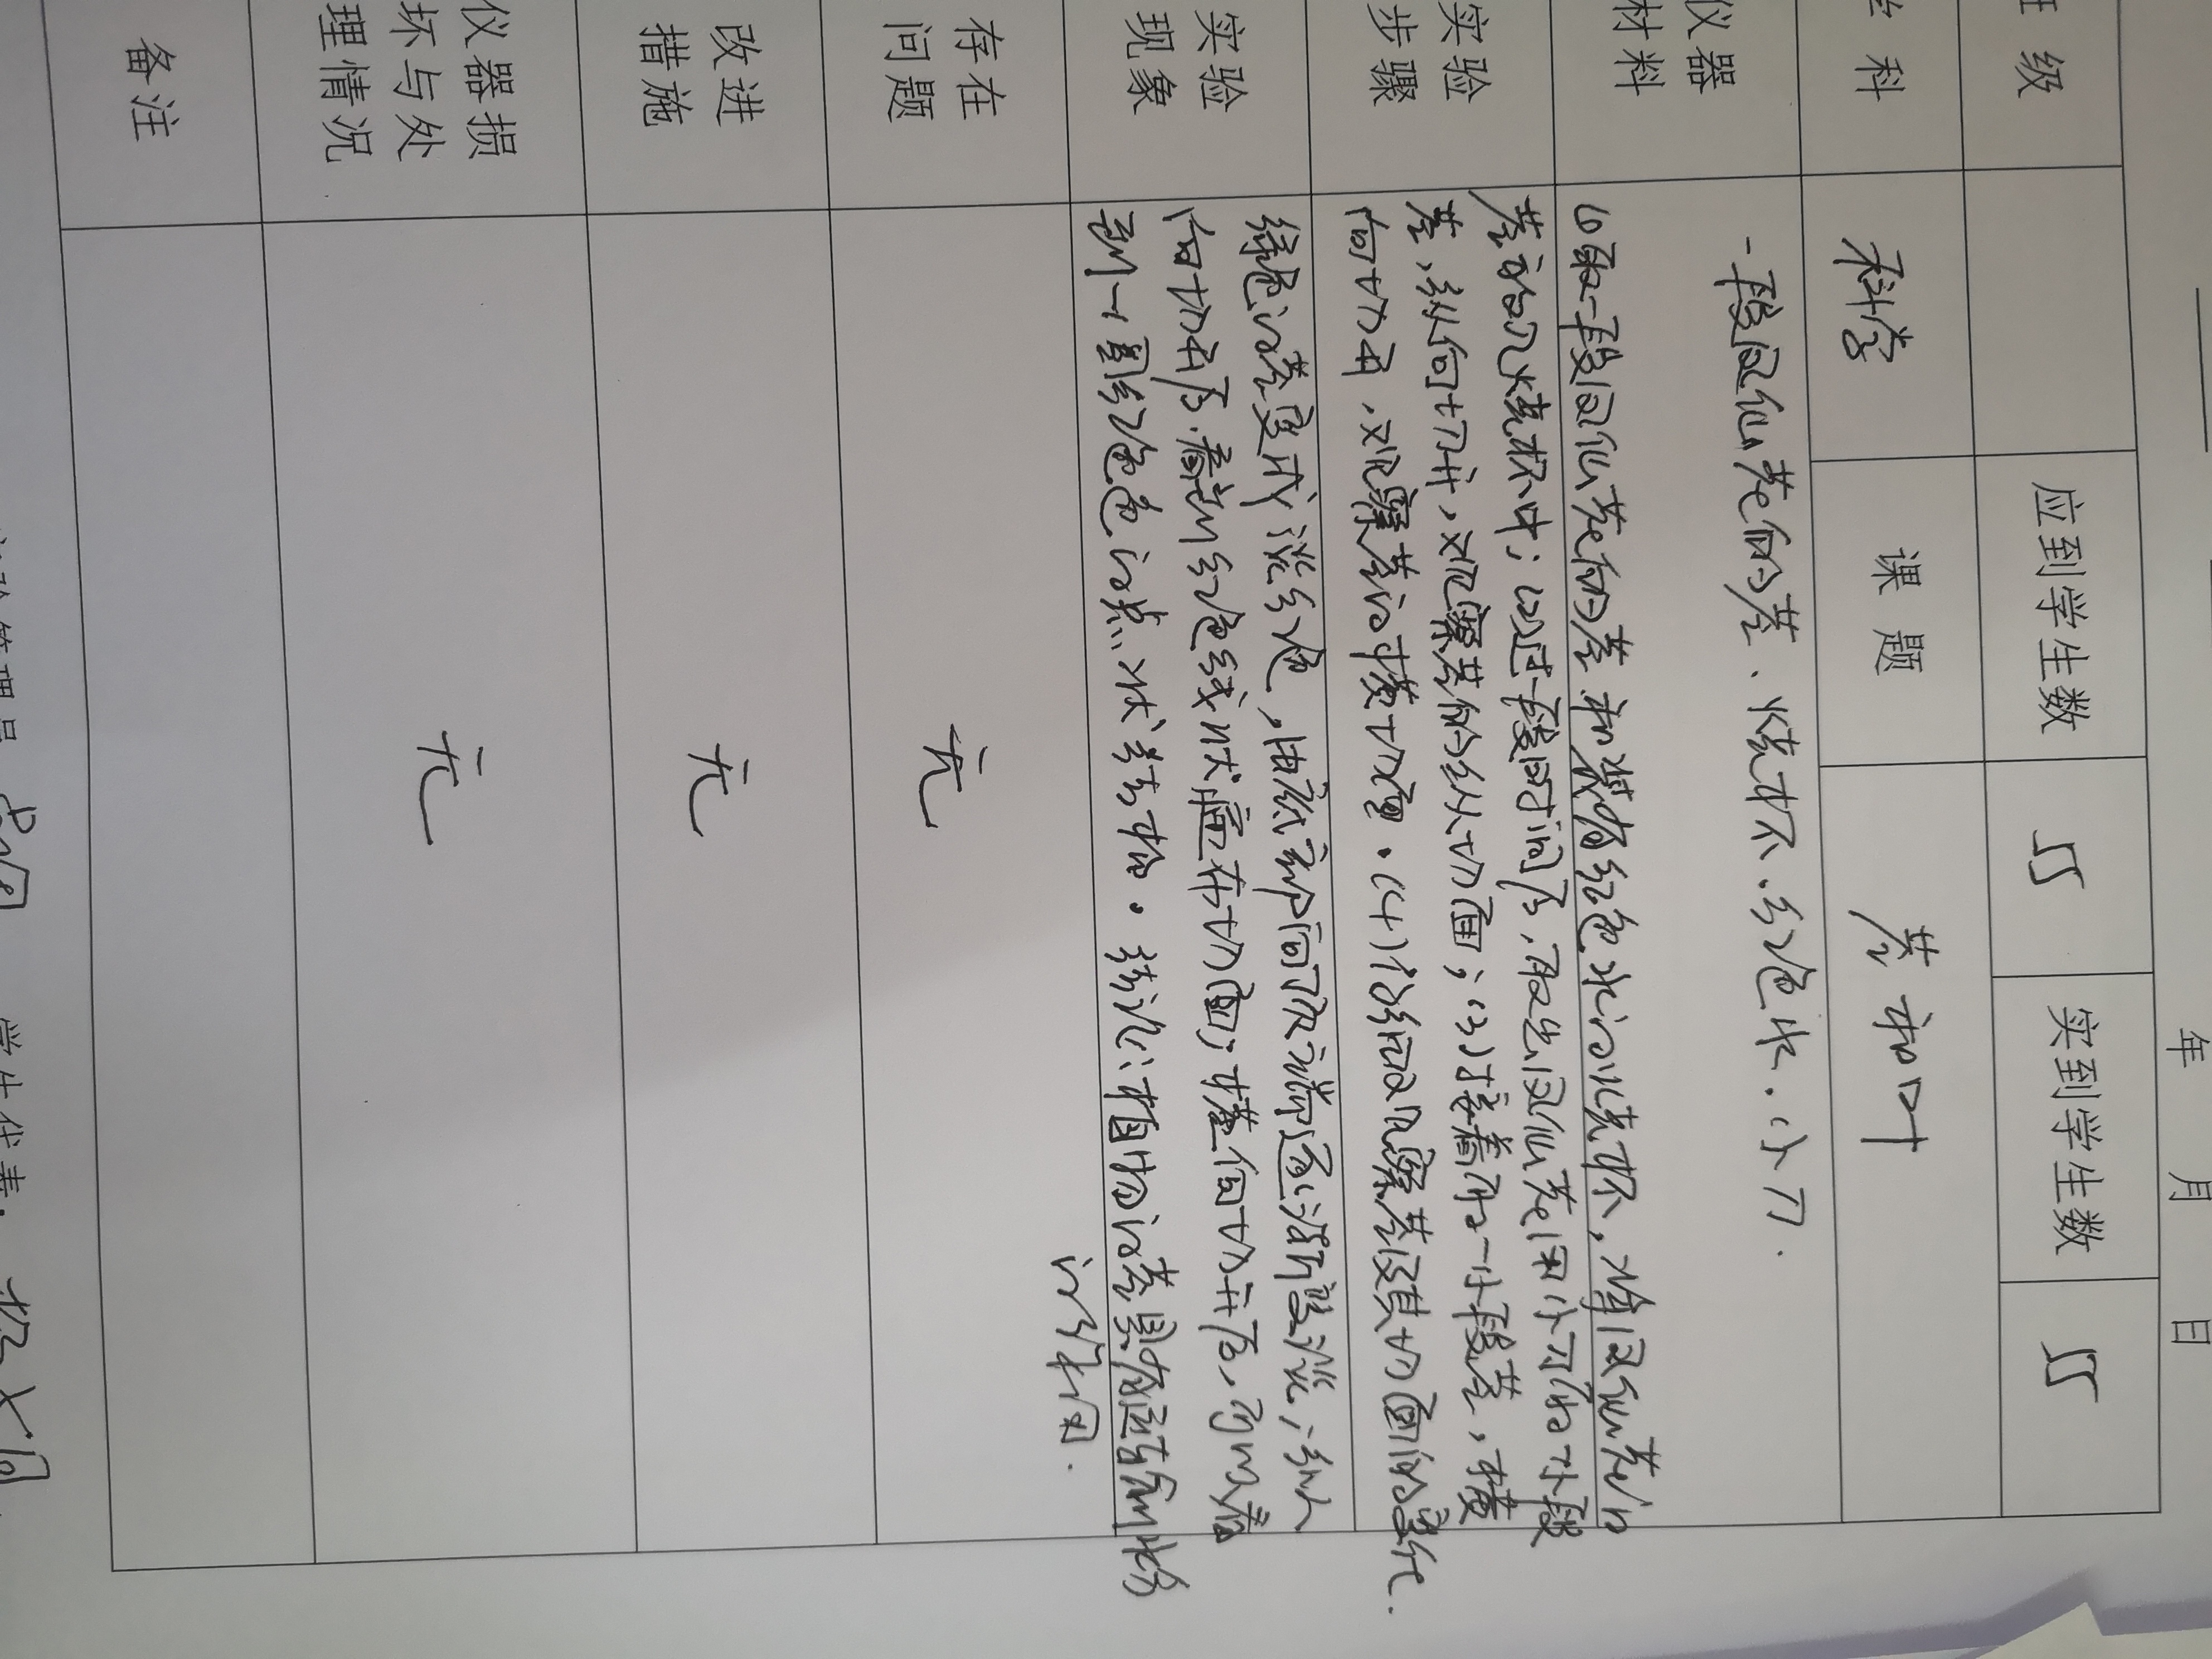 年 月 日
班 级 应到学生数 55 实到学生数 55
学 科 科学 课 题 茎和叶
仪器
材料
一段凤仙花的茎、烧杯、红色水、小刀.
实验
步骤
(1)取一段凤仙花的茎和装有红色水的烧杯,将凤仙花的
茎放入烧杯中;(2)过一段时间后,取出凤仙花用小刀切下小段
茎,纵向切开,观察茎的纵切面;(3)接着切一小段茎,横
向切开,观察茎的横切面.(4)仔细观察茎及其切面的变化.
实验
现象
绿色的茎变成淡红色,由底部向顶端逐渐变淡;纵
向切开后,看到红色线状分布切面;横向切开后,可以看
到一圈红色的点状结构.结论:植物的茎具有运输水份
的作用.
存在
问题
无
改进
措施
无
仪器损
坏与处
理情况
无
备注
管理员 学生代表: